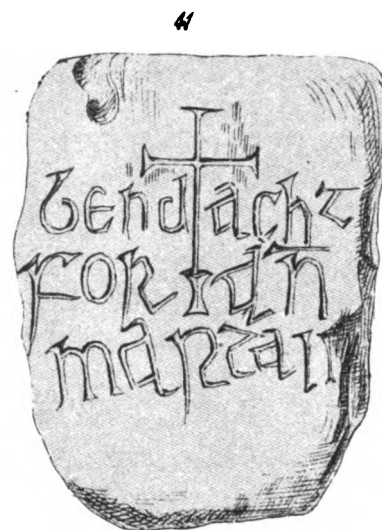 41
bendacht
for an̄
martain